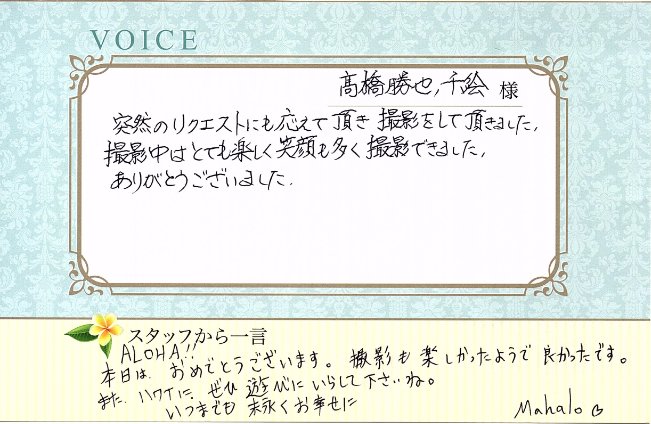 VOICE
髙橋勝也,千絵 様
突然のリクエストにも応えて頂き 撮影をして頂きました,
撮影中はとても楽しく笑顔も多く撮影できました,
ありがとうございました.
スタッフから一言
ALOHA!!
本日は、おめでとうございます。撮影も楽しかったようで良かったです。
また、ハワイに、ぜひ遊びにいらして下さいね。
いつまでも 末永くお幸せに
Mahalo